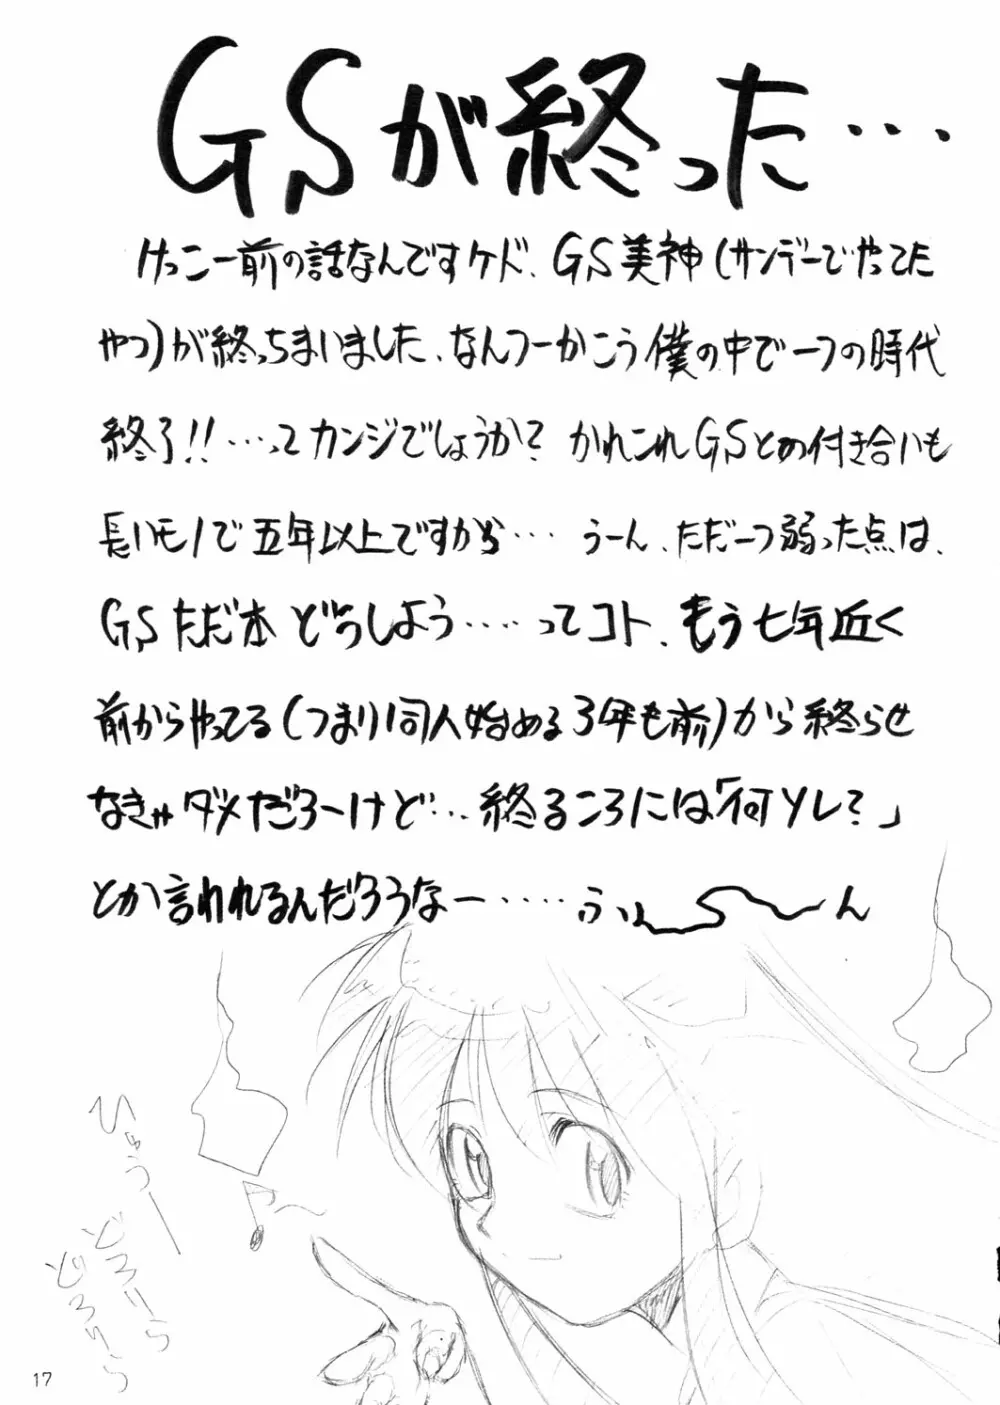 GSが終った…
けっこー前の話なんですケド、GS美神(サンデーでやってた
やつ)が終っちまいました、なんつーかこう僕の中で一つの時代
終了!!…ってカンジでしょうか? かれこれGSとの付き合いも
長いモノで五年以上ですから… うーん、ただ一つ弱った点は、
GSただ本どうしよう……ってコト、もう七年近く
前からやってる(つまり同人始める3年も前)から終らせ
なきゃダメだろーけど…終るころには「何ソレ?」
とか言われるんだろうなー…‥ふぃ〜ん
ひゅうー
どろりら
どろりら
17